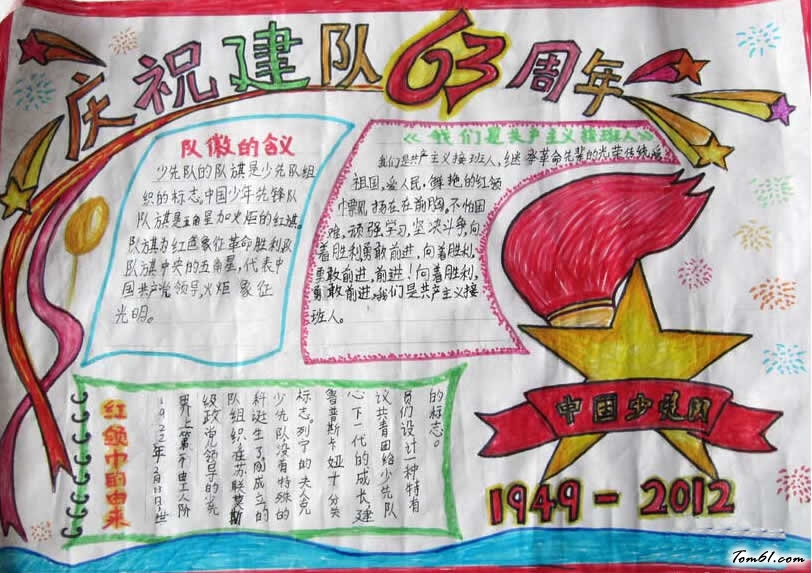 庆祝建队63周年
队徽的含义
少先队的队旗是少先队组
织的标志,中国少年先锋队
队旗是五角星加火炬的红旗。
队旗为红色象征革命胜利队
队旗中央的五角星,代表中
国共产党领导,火炬象征
光明。
《我们是共产主义接班人》
我们是共产主义接班人,继承革命先辈的光荣传统,爱
祖国,爱人民,鲜艳的红领
巾飘扬在在前胸。不怕困
难,顽强学习,坚决斗争,向
着胜利勇敢前进,向着胜利,
勇敢前进,前进!向着胜利,
勇敢前进,我们是共产主义接
班人。
红领巾的由来
1922年2月13日,世
界上第一个由工人阶
级政党领导的先
队组织在苏联莫斯
科诞生了,刚成立的
少先队没有特殊的
标志。列宁的夫人克
鲁普斯卡娅十分关
心下一代的成长,建
议共青团给少先队
员们设计一种特有
的标志。
中国少先队
1949-2012
Tom61.com